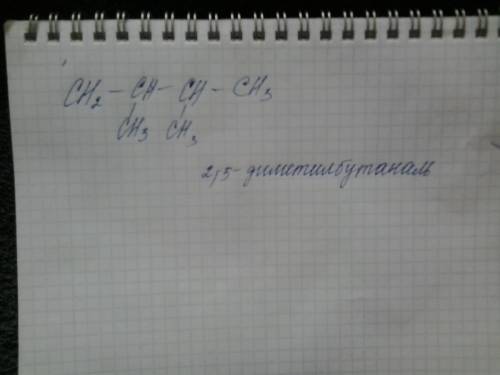 CH₂ – CH – CH – CH₃
CH₃ CH₃
2,3-диметилбутаналь